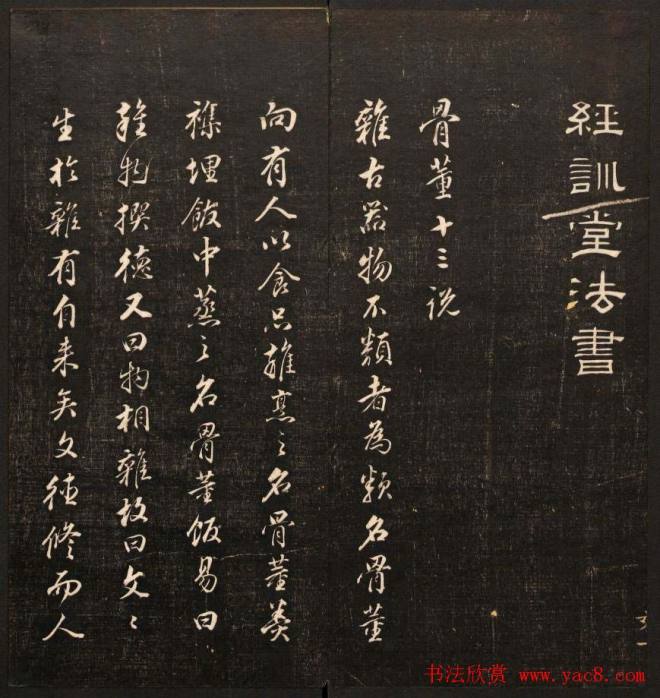 經訓堂法書
骨董十三说
雜古器物不類者為類名骨董
向有人以食品雜烹之名骨董羹
襍埋飯中蒸之名骨董飯易曰
雜物撰德又曰物相雜故曰文〻
生於雜有自来矣文德修而人
书法欣赏 www.yac8.com